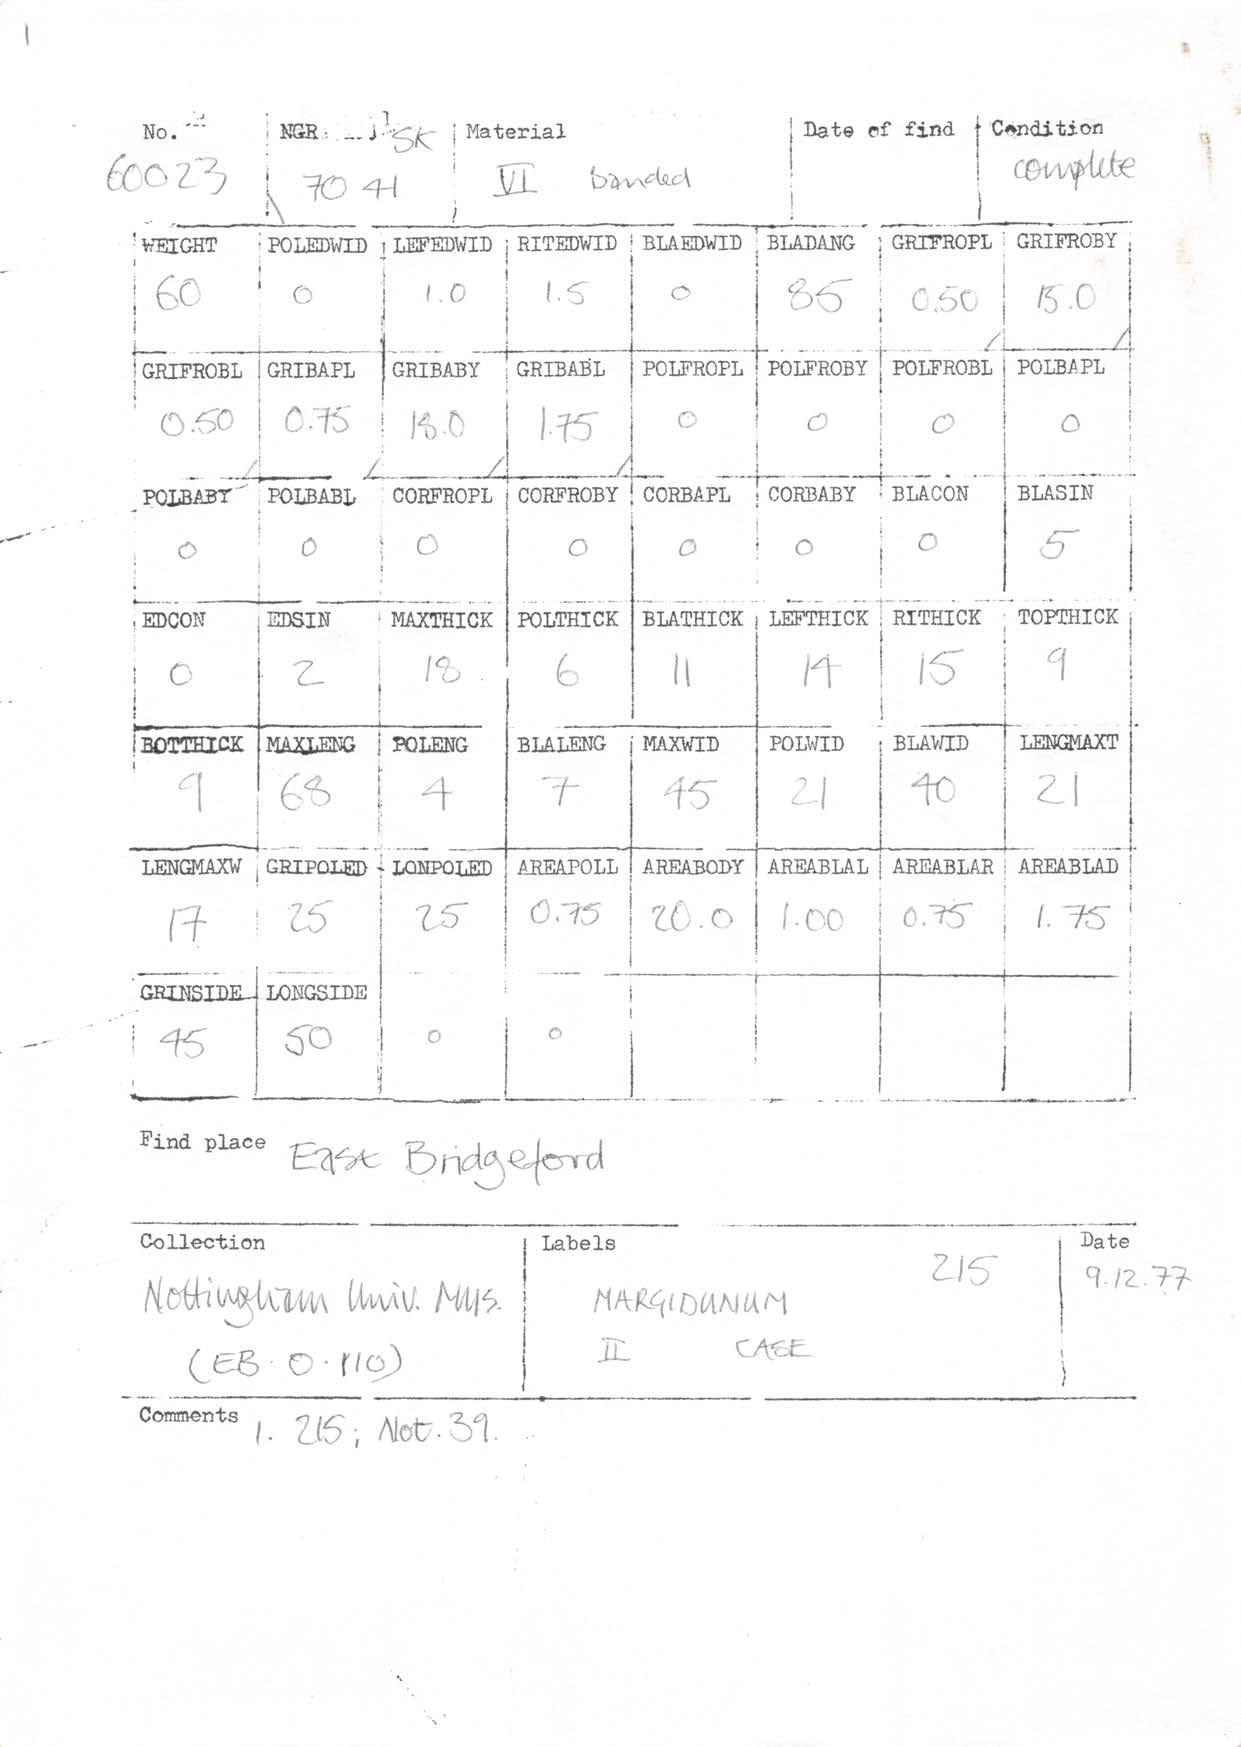 No. NGR SK Material Date of find Condition
60023 70 41 VI banded complete
WEIGHT POLEDWID LEFEDWID RITEDWID BLAEDWID BLADANG GRIFROPL GRIFROBY
60 0 1.0 1.5 0 85 0.50 15.0
GRIFROBL GRIBAPL GRIBABY GRIBABL POLFROPL POLFROBY POLFROBL POLBAPL
0.50 0.75 18.0 1.75 0 0 0 0
POLBABY POLBABL CORFROPL CORFROBY CORBAPL CORBABY BLACON BLASIN
0 0 0 0 0 0 0 5
EDCON EDSIN MAXTHICK POLTHICK BLATHICK LEFTHICK RITHICK TOPTHICK
0 2 18 6 11 14 15 9
BOTTHICK MAXLENG POLENG BLALENG MAXWID POLWID BLAWID LENGMAXT
9 68 4 7 45 21 40 21
LENGMAXW GRIPOLED LONPOLED AREAPOLL AREABODY AREABLAL AREABLAR AREABLAD
17 25 25 0.75 20.0 1.00 0.75 1.75
GRINSIDE LONGSIDE
45 50 0 0
Find place East Bridgeford
Collection Labels 215 Date
Nottingham Univ. Mus. MARGIDUNUM 9.12.77
(EB.O.110) II CASE
Comments 1. 215; Not. 39.